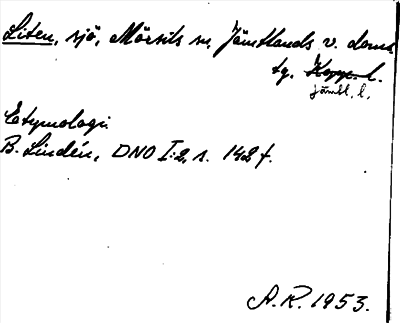 Liten, sjö, Mörsils sn, Jämtlands v. doms.
tg. Kopp. l.
jämtl. l.
Etymologi.
B. Lindén, DNO I:2, s. 142 f.
A.R. 1953.